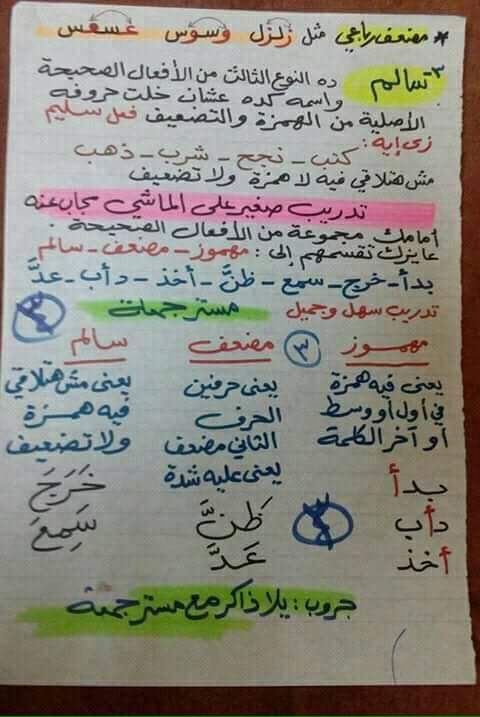 * مضعف رباعي مثل زلزل وسوس عسعس
٣ سالم ده النوع الثالث من الأفعال الصحيحة
واسمه كده عشان خلت حروفه
الأصلية من الهمزة والتضعيف فعل سليم
زي إيه:
كتب - نجح - شرب - ذهب
مش هتلاقي فيه لا همزة ولا تضعيف
تدريب صغير على الماشي كجاب عنه
أمامك مجموعة من الأفعال الصحيحة:
عايزك تقسمهم إلى: مهموز - مضعف - سالم
بدأ - خرج - سمع - ظنَّ - أخذ - دأب - عدَّ
تدريب سهل وجميل مستر جمعة
مهموز ٣ مضعف سالم
يعنى فيه همزة يعنى حرفين يعنى مش هتلاقي
في أول أو وسط الحرف فيه همزة
أو آخر الكلمة الثاني مضعف ولا تضعيف
يعنى عليه شدة
بدأ خَرَجَ
دأب ظَنَّ سَمِعَ
أخذ عَدَّ
جروب: يلا ذاكر مع مستر جمعة